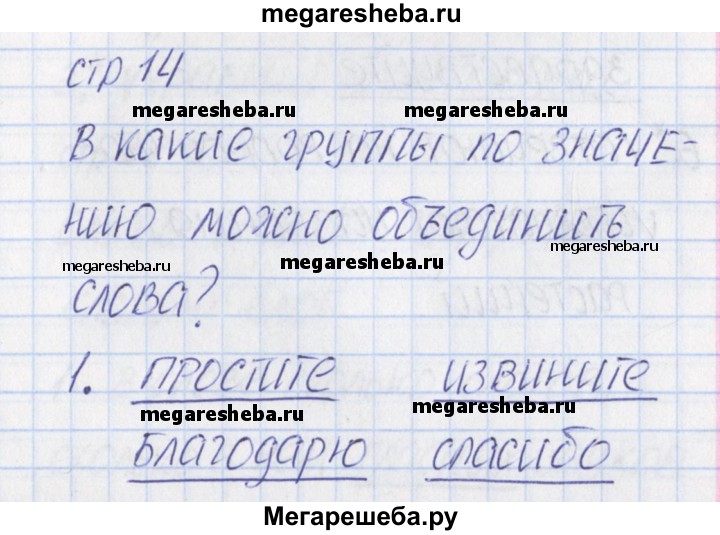 megaresheba.ru
стр 14
megaresheba.ru megaresheba.ru
В какие группы по значе-
нию можно объединить
megaresheba.ru
megaresheba.ru megaresheba.ru
слова?
1. простите извините
megaresheba.ru megaresheba.ru
благодарю спасибо
Мегарешеба.ру